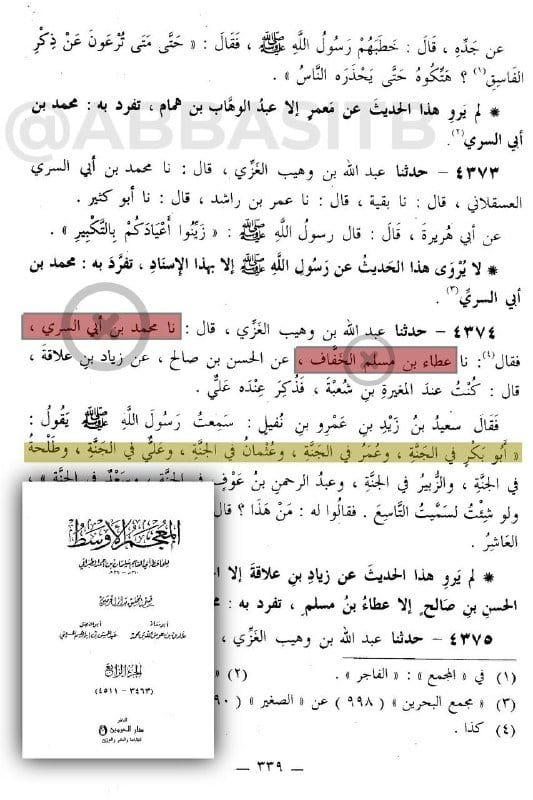 عن جَدِّهِ ، قَالَ : خَطَبَهُمْ رَسُولُ اللَّهِ ﷺ ، فَقَالَ : « حَتَّى مَتَى تُرْعَونَ عَنْ ذِكْرِ
الفَاسِقِ (١) ؟ هَتِّكُوهُ حَتَّى يَحْذَرَه النَّاسُ » .
* لم يَروِ هذا الحديثَ عن مَعمرٍ إلا عبدُ الوهَّابِ بن همام ، تفرد به : محمد بن
أبي السري (٢) .
@ABBASITB
٤٣٧٣ – حدثنا عبد الله بن وهيب الغَزِّي ، قال : نا محمد بن أبي السري
العسقلاني ، قال : نا بقية ، قال : نا عمر بن راشد ، قال : نا أبو كثير .
عن أبي هُريرةَ ، قَالَ : قال رسولُ اللَّهِ ﷺ : « زَيِّنُوا أَعْيَادَكُمْ بِالتَّكْبِيرِ » .
* لا يُرْوَى هذا الحَديثُ عن رَسُولِ اللَّهِ ﷺ إلا بِهذا الإِسنادِ ، تفرَّدَ به : محمدُ بن
أبي السريِّ (٣) .
٤٣٧٤ – حدثنا عبد الله بن وهيب الغَزِّي ، قال : نا محمد بن أبي السري ،
فقال (٤) : نا عطاء بن مسلم الخَفَّاف ، عن الحسن بن صالح ، عن زياد بن علاقة ،
قال : كُنْتُ عندَ المغيرةِ بنِ شُعْبَةَ ، فَذُكِرَ عِنْدَه عَليٌّ .
فَقَالَ سعيدُ بنُ زَيدِ بنِ عَمْرِو بنِ نُفيلٍ : سَمِعتُ رَسولَ اللَّهِ ﷺ يَقُولُ :
« أَبُو بَكْرٍ في الجَنَّةِ ، وعُمَرُ في الجَنَةِ ، وعُثمانُ في الجنَّةِ ، وعَليٌّ في الجَنَّةِ ، وطَلْحةُ
في الجنَّةِ ، والزُّبيرُ في الجنَّةِ ، وعبدُ الرحمنِ بنُ عَوْفٍ في الجنَّةِ ، وسَعْدٌ في الجنَّةِ » ،
ولو شِئْتُ لسَمَّيتُ التَّاسِعَ . فقالُوا له : مَنْ هَذَا ؟ قال
العَاشِرُ .
* لم يَروِ هذا الحديثَ عن زيادِ بنِ علاقةَ إلا
الحسنِ بنِ صَالحٍ إلا عطاءُ بنُ مسلم ، تفرد به :
٤٣٧٥ – حدثنا عبد الله بن وهيب الغَزِّي ،
(١) في « المجمع » : « الفاجر » . (٢) «
(٣) « مجمع البحرين » ( ٩٩٨ ) عن « الصغير »
(٤) كذا .
— ٣٣٩ —
المعجم الأوسط
الجزء الرابع
(٣٤٦٣ - ٤٥١١)
الناشر
دار الحرمين